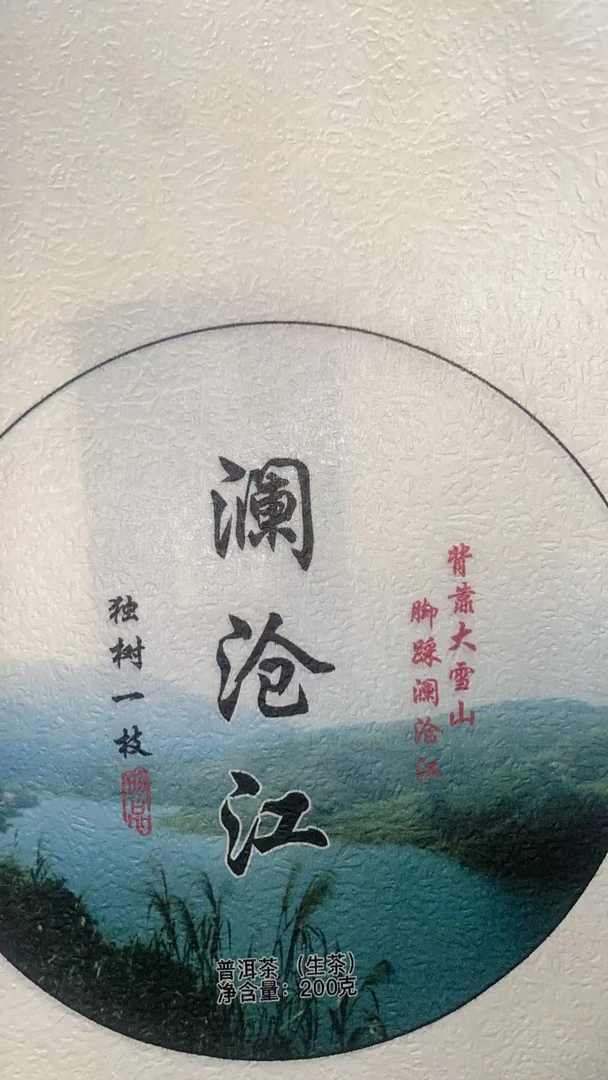 背靠大雪山
脚踩澜沧江
澜沧江
独树一枝
普洱茶（生茶）
净含量：200克